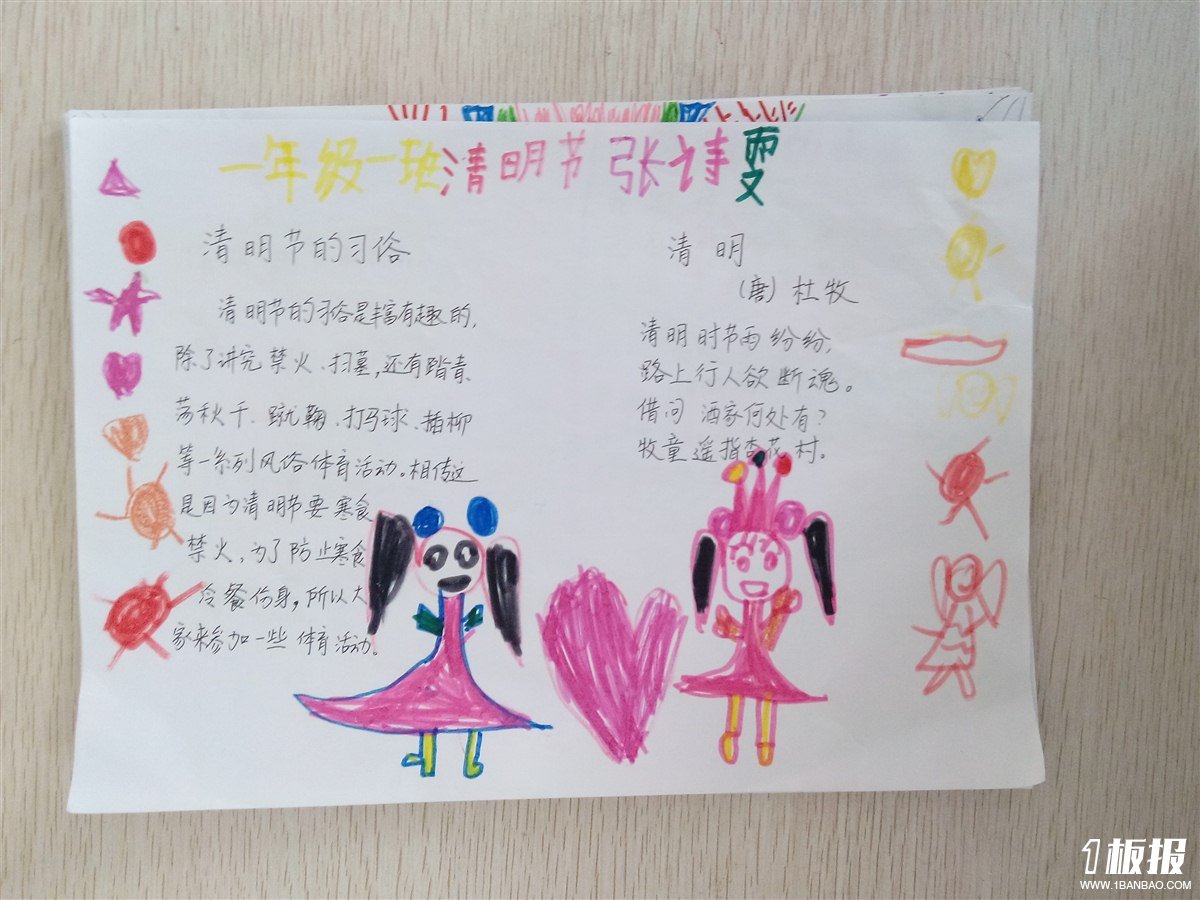 一年级一班清明节 张诗雯
清明节的习俗
清明节的习俗是丰富有趣的,
除了讲究禁火、扫墓,还有踏青、
荡秋千、蹴鞠、打马球、插柳
等一系列风俗体育活动。相传这
是因为清明节要寒食
禁火,为了防止寒食
冷餐伤身,所以大
家来参加一些体育活动。
清明
(唐)杜牧
清明时节雨纷纷,
路上行人欲断魂。
借问酒家何处有?
牧童遥指杏花村。
1板报
WWW.1BANBAO.COM